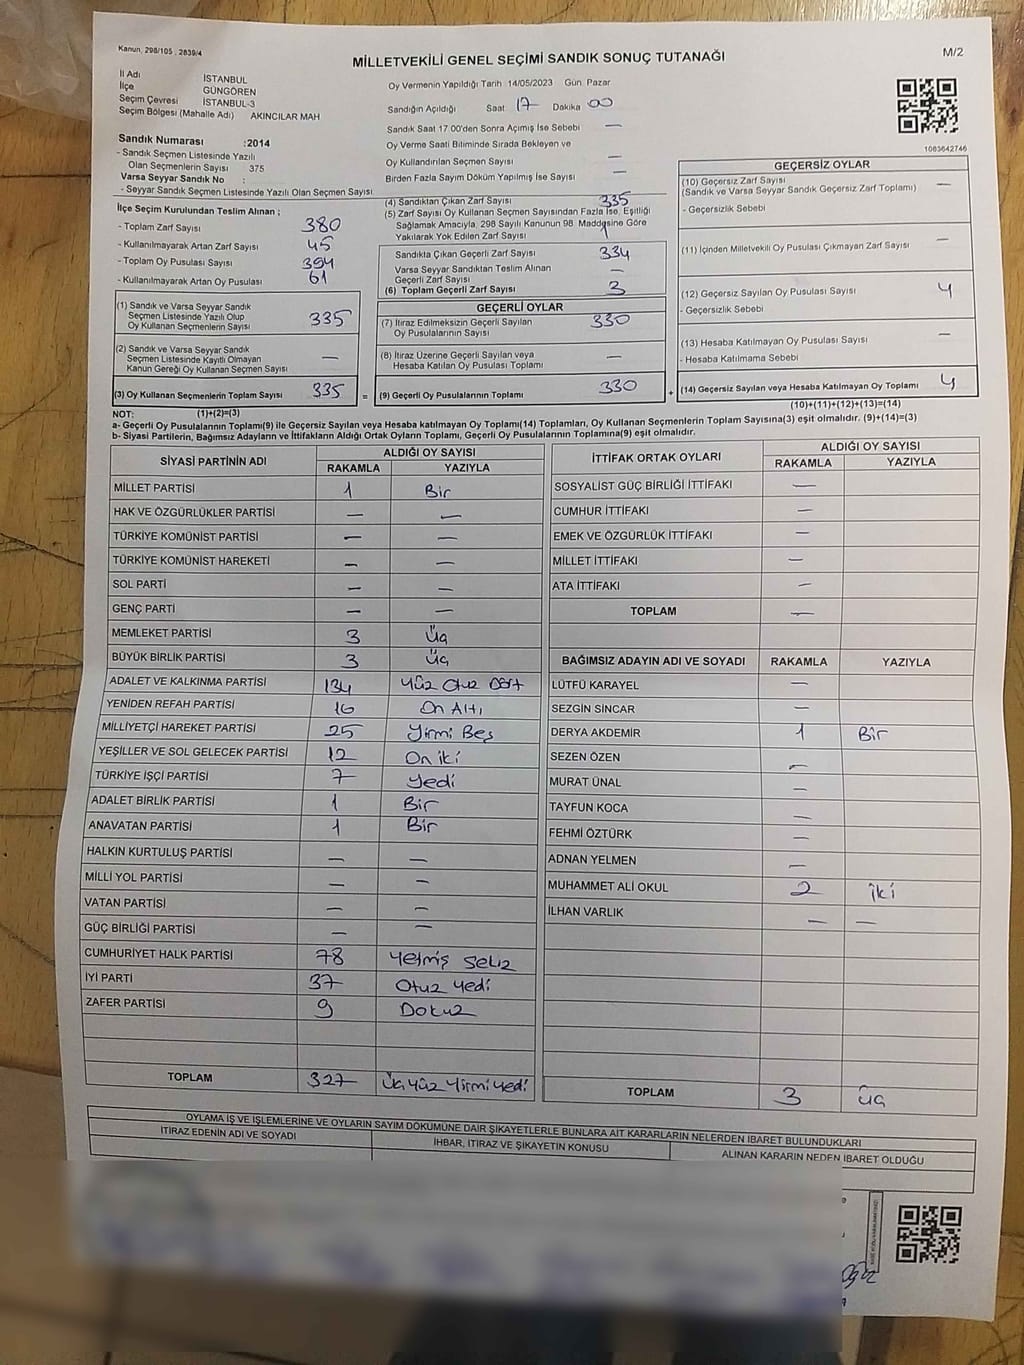 Kanun, 298/105 , 2839/4
MİLLETVEKİLİ GENEL SEÇİMİ SANDIK SONUÇ TUTANAĞI
M/2
İl Adı İSTANBUL
İlçe GÜNGÖREN
Seçim Çevresi İSTANBUL-3
Seçim Bölgesi (Mahalle Adı) AKINCILAR MAH
Oy Vermenin Yapıldığı Tarih 14/05/2023 Gün Pazar
Sandığın Açıldığı Saat 17 Dakika 00
Sandık Saat 17.00'den Sonra Açılmış İse Sebebi —
Oy Verme Saati Bitiminde Sırada Bekleyen ve
Oy Kullandırılan Seçmen Sayısı —
Birden Fazla Sayım Döküm Yapılmış İse Sayısı —
1083642746
Sandık Numarası :2014
- Sandık Seçmen Listesinde Yazılı
Olan Seçmenlerin Sayısı 375
Varsa Seyyar Sandık No :
- Seyyar Sandık Seçmen Listesinde Yazılı Olan Seçmen Sayısı
İlçe Seçim Kurulundan Teslim Alınan ;
- Toplam Zarf Sayısı 380
- Kullanılmayarak Artan Zarf Sayısı 45
- Toplam Oy Pusulası Sayısı 394
- Kullanılmayarak Artan Oy Pusulası 61
(1) Sandık ve Varsa Seyyar Sandık
Seçmen Listesinde Yazılı Olup
Oy Kullanan Seçmenlerin Sayısı 335
(2) Sandık ve Varsa Seyyar Sandık
Seçmen Listesinde Kayıtlı Olmayan
Kanun Gereği Oy Kullanan Seçmen Sayısı —
(3) Oy Kullanan Seçmenlerin Toplam Sayısı 335 =
(4) Sandıktan Çıkan Zarf Sayısı 335
(5) Zarf Sayısı Oy Kullanan Seçmen Sayısından Fazla İse, Eşitliği
Sağlamak Amacıyla, 298 Sayılı Kanunun 98. Maddesine Göre
Yakılarak Yok Edilen Zarf Sayısı 1
Sandıkla Çıkan Geçerli Zarf Sayısı 334
Varsa Seyyar Sandıktan Teslim Alınan
Geçerli Zarf Sayısı —
(6) Toplam Geçerli Zarf Sayısı 3
GEÇERLİ OYLAR
(7) İtiraz Edilmeksizin Geçerli Sayılan
Oy Pusulalarının Sayısı 330
(8) İtiraz Üzerine Geçerli Sayılan veya
Hesaba Katılan Oy Pusulası Toplamı —
(9) Geçerli Oy Pusulalarının Toplamı 330 +
GEÇERSİZ OYLAR
(10) Geçersiz Zarf Sayısı
(Sandık ve Varsa Seyyar Sandık Geçersiz Zarf Toplamı) —
- Geçersizlik Sebebi
(11) İçinden Milletvekili Oy Pusulası Çıkmayan Zarf Sayısı —
(12) Geçersiz Sayılan Oy Pusulası Sayısı 4
- Geçersizlik Sebebi
(13) Hesaba Katılmayan Oy Pusulası Sayısı —
- Hesaba Katılmama Sebebi
(14) Geçersiz Sayılan veya Hesaba Katılmayan Oy Toplamı 4
NOT: (1)+(2)=(3)
(10)+(11)+(12)+(13)=(14)
a- Geçerli Oy Pusulalarının Toplamı(9) ile Geçersiz Sayılan veya Hesaba katılmayan Oy Toplamı(14) Toplamları, Oy Kullanan Seçmenlerin Toplam Sayısına(3) eşit olmalıdır. (9)+(14)=(3)
b- Siyasi Partilerin, Bağımsız Adayların ve İttifakların Aldığı Ortak Oyların Toplamı, Geçerli Oy Pusulalarının Toplamına(9) eşit olmalıdır.
SİYASİ PARTİNİN ADI ALDIĞI OY SAYISI
RAKAMLA YAZIYLA
MİLLET PARTİSİ 1 Bir
HAK VE ÖZGÜRLÜKLER PARTİSİ — —
TÜRKİYE KOMÜNİST PARTİSİ — —
TÜRKİYE KOMÜNİST HAREKETİ — —
SOL PARTİ — —
GENÇ PARTİ — —
MEMLEKET PARTİSİ 3 Üç
BÜYÜK BİRLİK PARTİSİ 3 Üç
ADALET VE KALKINMA PARTİSİ 134 Yüz Otuz Dört
YENİDEN REFAH PARTİSİ 16 On Altı
MİLLİYETÇİ HAREKET PARTİSİ 25 Yirmi Beş
YEŞİLLER VE SOL GELECEK PARTİSİ 12 On iki
TÜRKİYE İŞÇİ PARTİSİ 7 Yedi
ADALET BİRLİK PARTİSİ 1 Bir
ANAVATAN PARTİSİ 1 Bir
HALKIN KURTULUŞ PARTİSİ — —
MİLLİ YOL PARTİSİ — —
VATAN PARTİSİ — —
GÜÇ BİRLİĞİ PARTİSİ — —
CUMHURİYET HALK PARTİSİ 78 Yetmiş Sekiz
İYİ PARTİ 37 Otuz Yedi
ZAFER PARTİSİ 9 Dokuz
TOPLAM 327 Üç Yüz Yirmi Yedi
İTTİFAK ORTAK OYLARI ALDIĞI OY SAYISI
RAKAMLA YAZIYLA
SOSYALİST GÜÇ BİRLİĞİ İTTİFAKI —
CUMHUR İTTİFAKI —
EMEK VE ÖZGÜRLÜK İTTİFAKI —
MİLLET İTTİFAKI —
ATA İTTİFAKI —
TOPLAM —
BAĞIMSIZ ADAYIN ADI VE SOYADI RAKAMLA YAZIYLA
LÜTFÜ KARAYEL —
SEZGİN SİNCAR —
DERYA AKDEMİR 1 Bir
SEZEN ÖZEN —
MURAT ÜNAL —
TAYFUN KOCA —
FEHMİ ÖZTÜRK —
ADNAN YELMEN —
MUHAMMET ALİ OKUL 2 iki
İLHAN VARLIK — —
TOPLAM 3 üç
OYLAMA İŞ VE İŞLEMLERİNE VE OYLARIN SAYIM DÖKÜMÜNE DAİR ŞİKAYETLERLE BUNLARA AİT KARARLARIN NELERDEN İBARET BULUNDUKLARI
İTİRAZ EDENİN ADI VE SOYADI İHBAR, İTİRAZ VE ŞİKAYETİN KONUSU ALINAN KARARIN NEDEN İBARET OLDUĞU